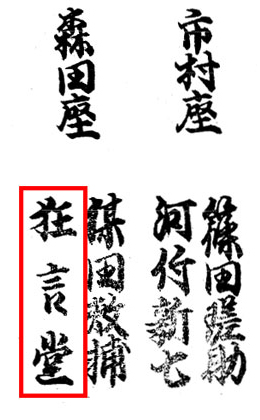 市村座
篠田瑳助
河竹新七
森田座
狂言堂